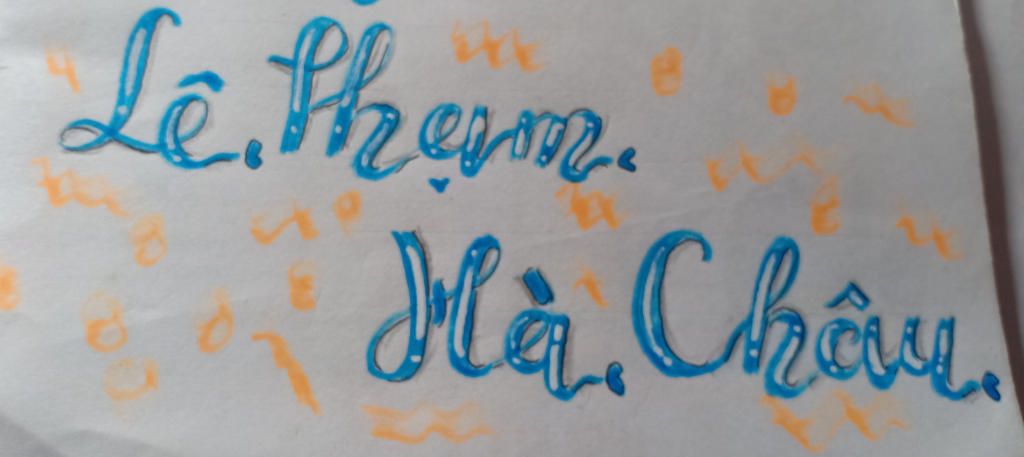 Lê. Phạm.
Hà. Châu.